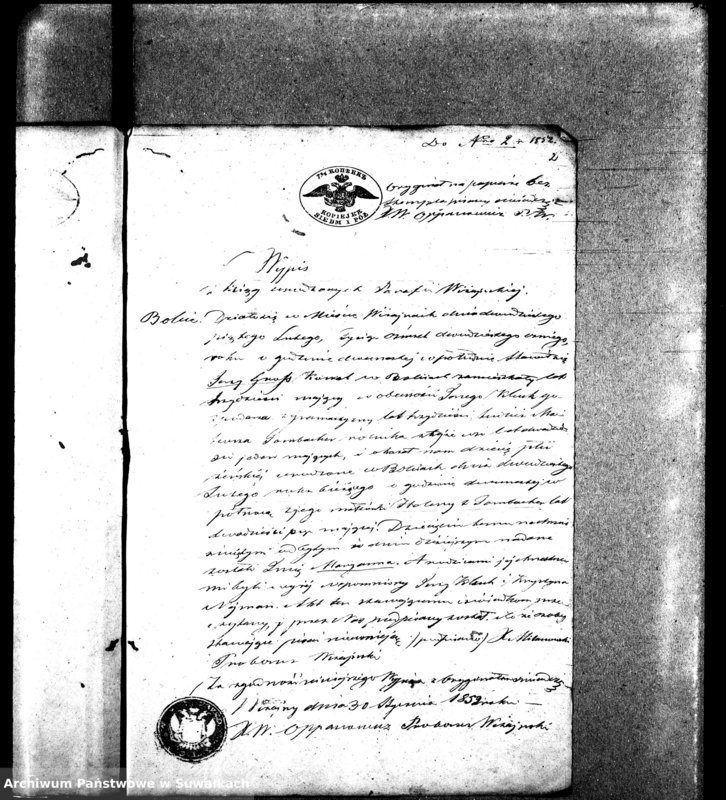 Do Nro 2 r 1852
2
7½ КОПѢЕКЪ
KOPIEJEK
SIEDM I PÓŁ
Oryginał na papierze bez
stempla pisany
X W. Oppanowicz
Wypis
z księg urodzonych Parafii Wiżajskiej.
Bolcie. Działo się w Mieście Wiżajnach dnia dwudziestego
piątego Lutego, Tysiąc Ośmset dwudziestego ósmego
roku o godzinie dwunastej w południe Stawił się
Jerzy Kowal w Bolciach zamieszkały lat
trzydzieści mający w obecności Jerzego Kluk go-
spodarza z lat trzydzieści sześć i Ma-
teusza Tombacher rolnika lat dwadzie-
ści jeden mających, i okazał nam dziecię płci
żeńskiej urodzone w Bolciach dnia dwudziestego
Lutego roku bieżącego o godzinie dwunastej w
północ z jego małżonki Heleny z Tombacher lat
dwadzieści pięć mającej. Dziecięciu temu na chrzcie
świętym odbytym w dniu dzisiejszym nadane
zostało Imię Maryanna. A rodzicami jej chrzestne-
mi byli wyżej wspomniony Jerzy Kluk i Krystyna
Nyman. Akt ten stawającemu i świadkom prze-
czytany, i przez Nas podpisany został, ile że osoby
stawające pisać nieumieją /podpisano/ X.
Proboszcz Wiżajnski
Za zgodność niniejszego Wypisu z Oryginałem
Wiżajny dnia 30 Stycznia 1852 roku
X W. Oppanowicz Proboszcz Wiżajnski
Archiwum Państwowe w Suwałkach